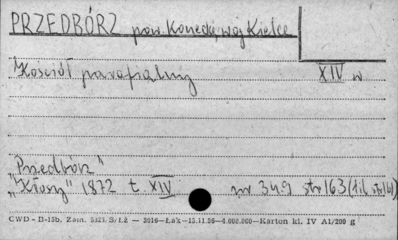 PRZEDBÓRZ pow. Końskie, woj Kielce
Kościół parafialny XIV w
"Przedbórz"
"Kłosy" 1872 t. XIV nr 349 str 163 (
CWD-B-15b. Zam. — Łak — 15.11.56 — 6.000.000 — Karton kl. IV A1/200 g